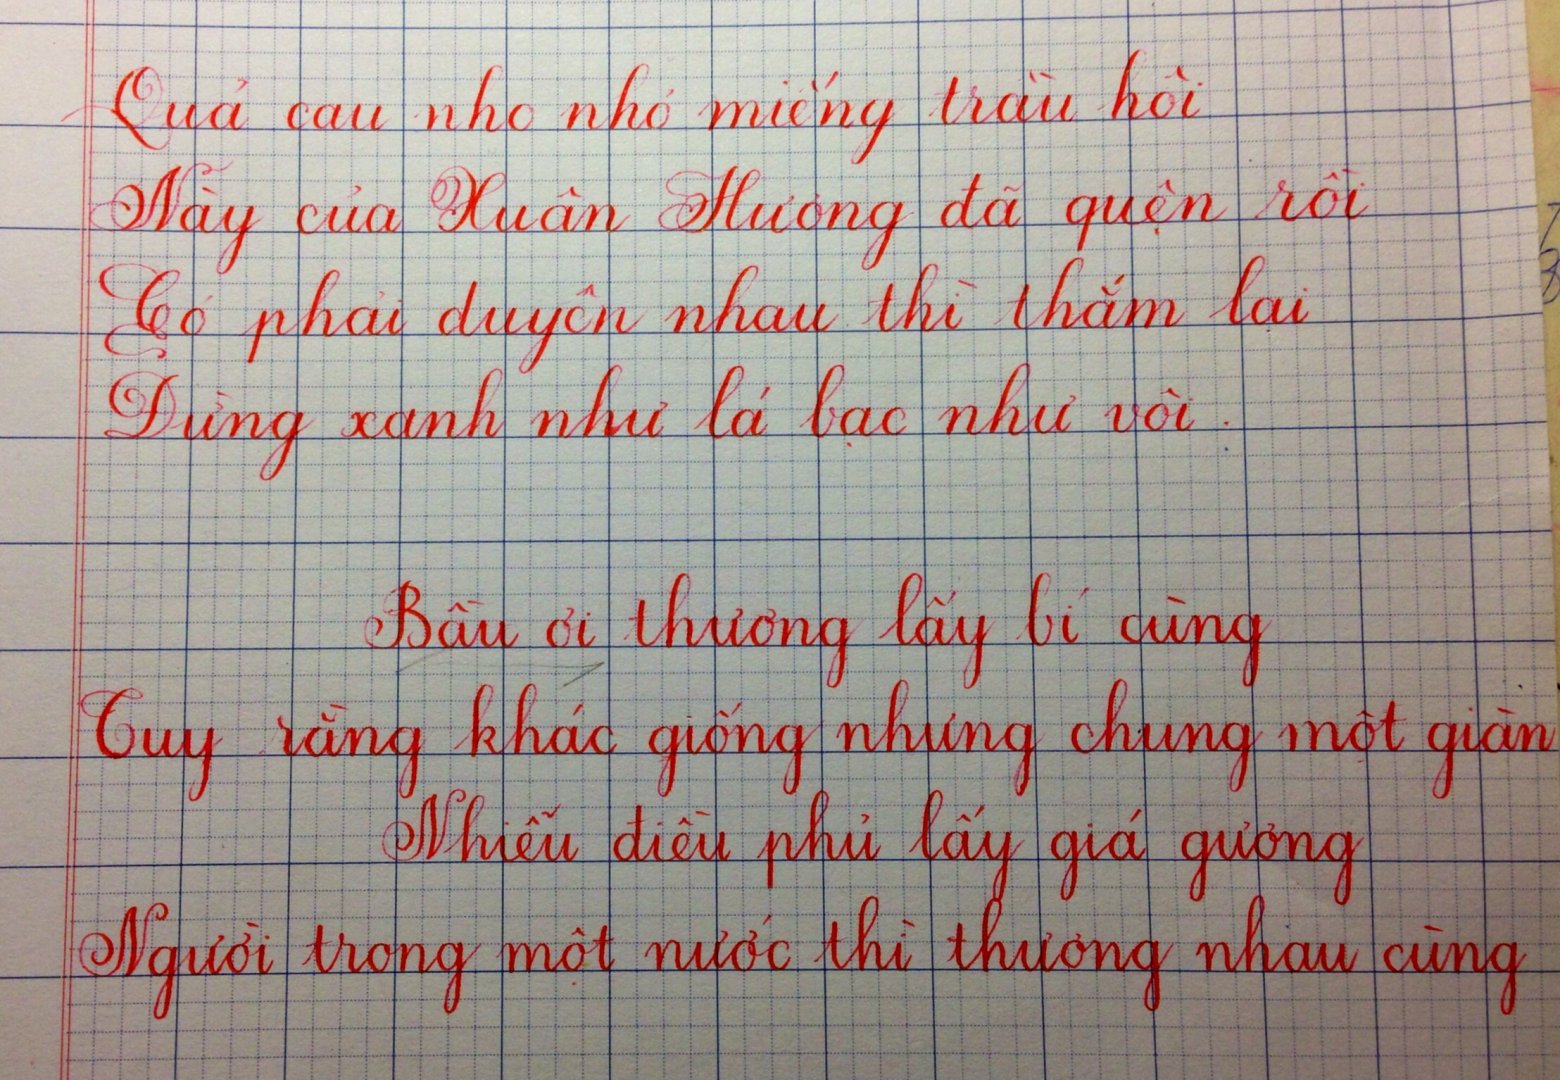 Quả cau nho nhỏ miếng trầu hôi
Này của Xuân Hương đã quện rồi
Có phải duyên nhau thì thắm lại
Đừng xanh như lá bạc như vôi.
Bầu ơi thương lấy bí cùng
Tuy rằng khác giống nhưng chung một giàn
Nhiễu điều phủ lấy giá gương
Người trong một nước thì thương nhau cùng